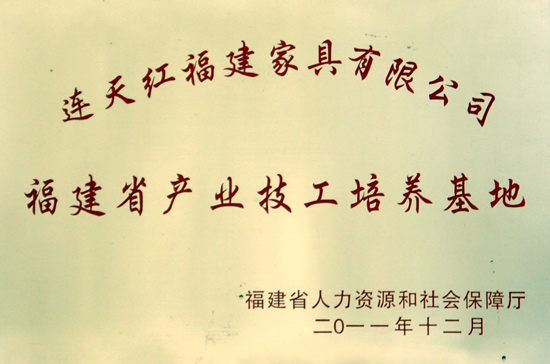 连天红福建家具有限公司
福建省产业技工培养基地
福建省人力资源和社会保障厅
二〇一一年十二月